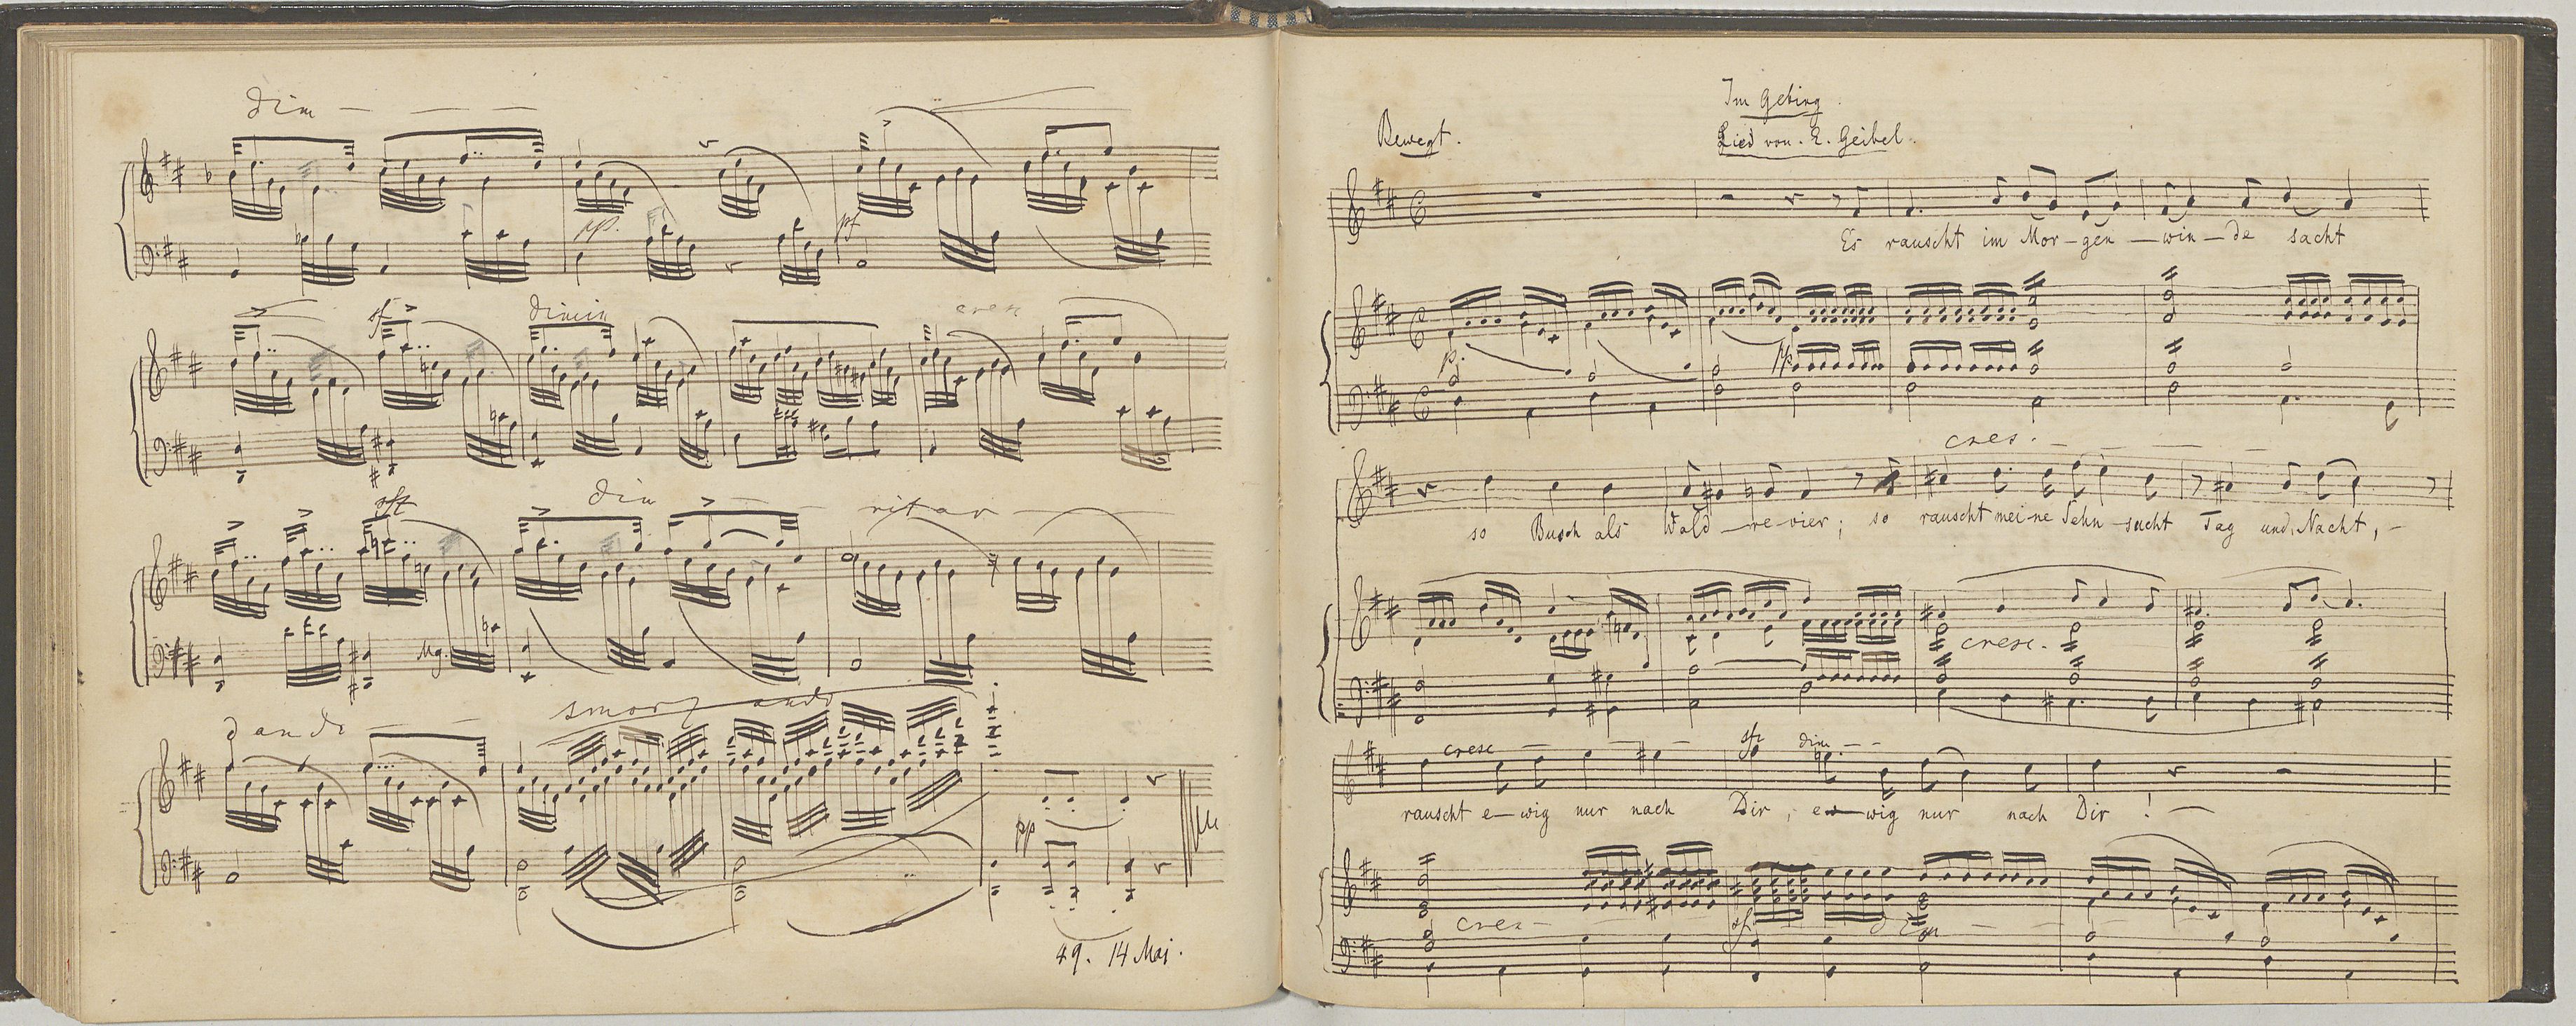 dim
pp.
pf
sf
dimin
cresc
sff
dim
ritar
Mg.
dando
smorzando
pp
49. 14 Mai.
Im Gebirg.
Bewegt.
Lied von. E. Geibel.
Es rauscht im Mor-gen-win-de sacht
p.
pp
cres.
so Busch als Wald-re-vier; so rauscht mei-ne Sehn-sucht Tag und Nacht,
cresc.
cresc
sfz
dim
rauscht e-wig nur nach Dir, e-wig nur nach Dir!
cres
sf
dim